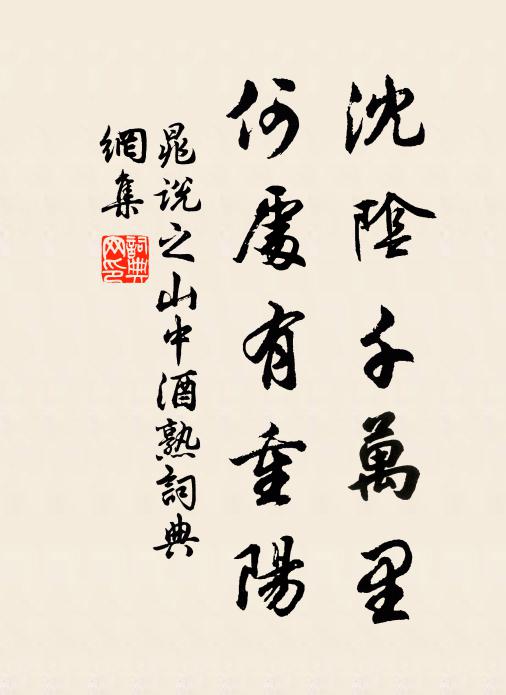 沈陰千萬里
何處有重陽
晁說之山中酒熟詞典
網集
詞典
网印